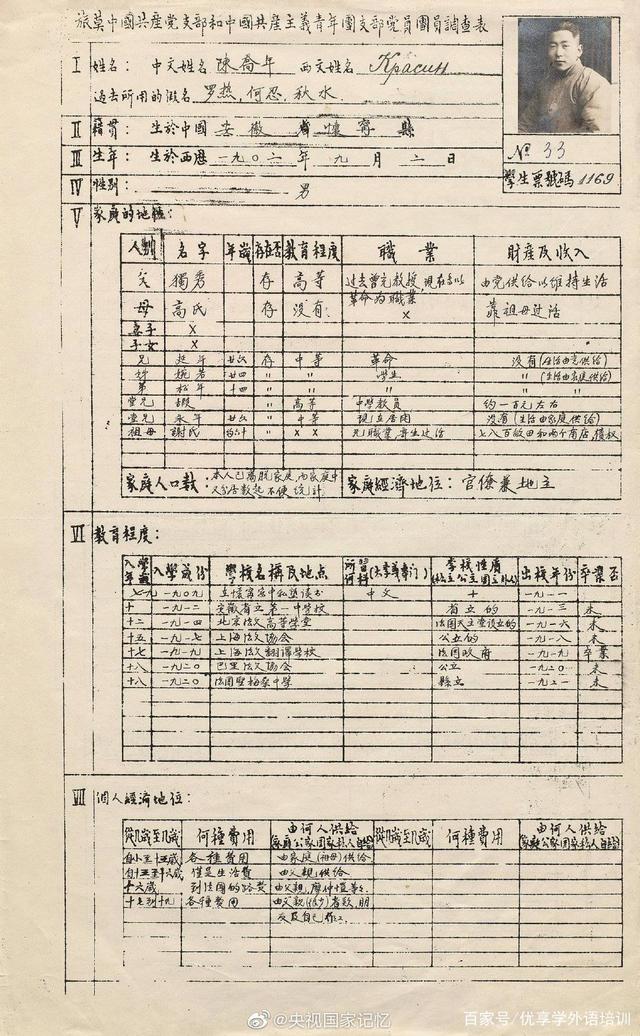 旅莫中國共產党支部和中國共產主義青年團支部党員團員調查表
I 姓名: 中文姓名 陳喬年 西文姓名 Красин
過去所用的假名 罗热, 何忍, 秋水
II 籍贯: 生於中國 安徽 省 懷寧 縣
III 生年: 生於西歷 一九〇二 年 九 月 二 日
IV 性别: 男
№ 33
學生票號碼 1169
V 家庭的地位:
人别 名字 年歲 存在否 教育程度 職業 財產及收入
父 獨秀 存 高等 过去曾充教授, 現在多以革命为職業 由党供给以维持生活
母 高氏 存 没有 × 靠祖母过活
妻子 ×
子女 ×
兄 延年 廿六 存 中等 革命 没有(生活由党供给)
廿四 〃 〃 學生 〃 (生活由家庭供给)
弟 松年 十四 〃 〃 〃 〃 〃
堂兄 遐 〃 高等 中學教員 约一百元左右
堂兄 永年 廿六 〃 中等 現在居闲 没有(生活由家庭供给)
祖母 謝氏 〃 × ×
家庭人口數: 本人已离脱家庭, 家庭經濟地位: 官僚兼地主
VI 教育程度:
入學年歲 入學歲份 學校名稱及地点 所習何科(大学或专门) 學校性质 出校年份 卒業否
一九〇九 中文 十 一九一一
十 一九一二 安徽省立第一中學校 省立的 一九一三 未
十二 一九一四 北京法文高等學堂 法国天主堂設立的 一九一六 未
十五 一九一七 上海法文協会 公立的 一九一八 未
十七 一九一九 上海法文翻譯学校 法国政府 一九一九 卒業
十八 一九二〇 巴里法文協会 公立 一九二〇 未
十八 一九二〇 法国聖梅桑中學 縣立 一九二一 未
VII 個人經濟地位:
從几歲至几歲 何種費用 由何人供给 從几歲至几歲 何種費用 由何人供给
自小至十五歲 各種費用 由家庭(祖母)供给
自十五至十六歲 僅是生活費 由父親供给
十六歲 到法國的路费 由父親,
十七到十九 各種費用 朋
友及自己作工.
@央视国家记忆
百家号/优享学外语培训